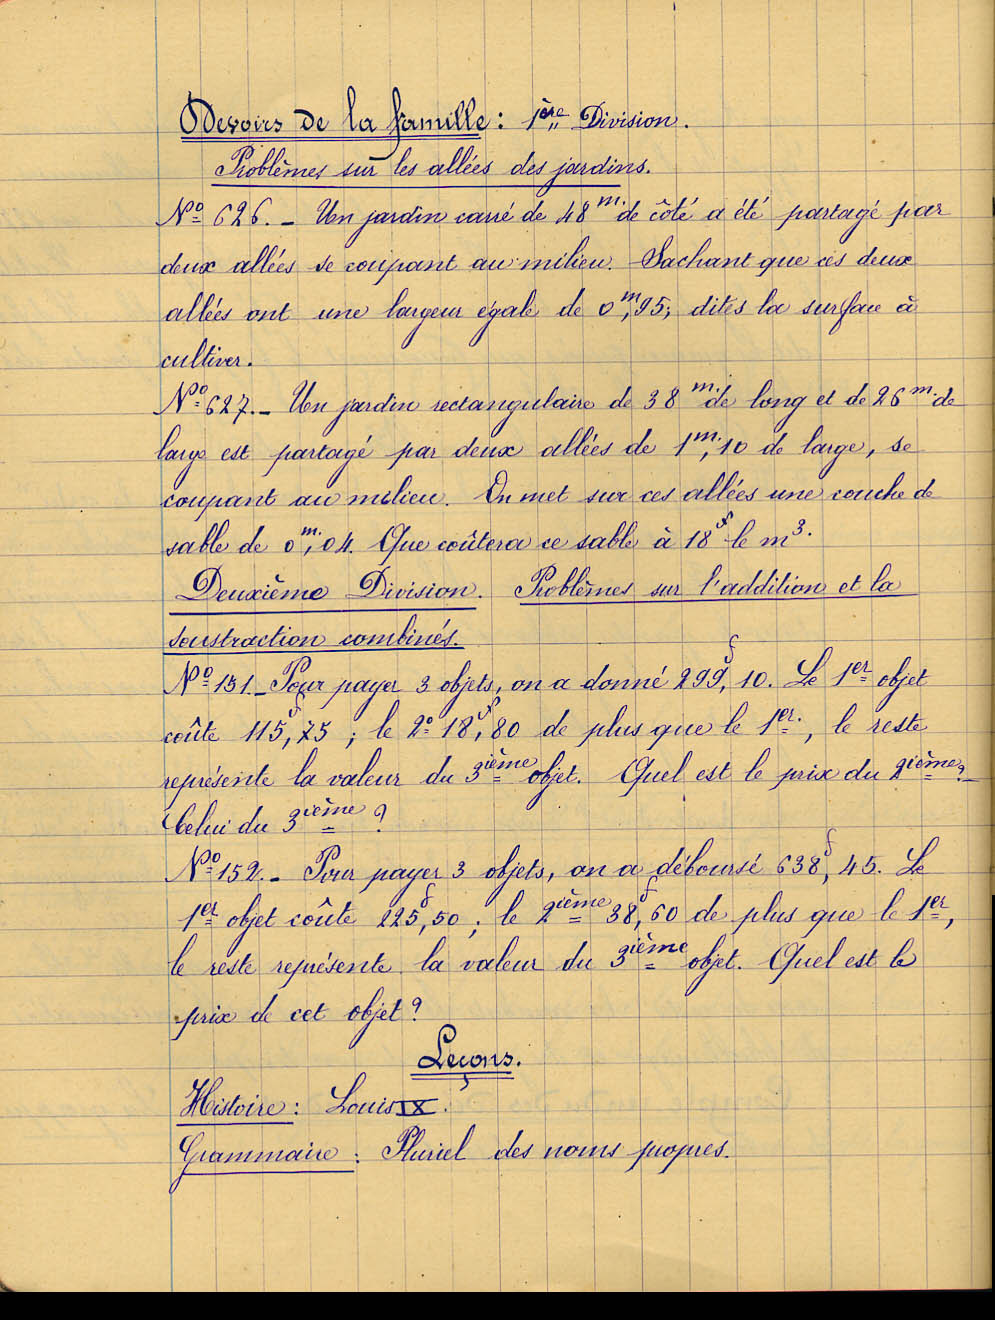 Devoirs de la famille : 1ère Division.
Problèmes sur les allées des jardins.
Nº 626. _ Un jardin carré de 48 m. de côté a été partagé par
deux allées se coupant au milieu. Sachant que ces deux
allées ont une largeur égale de 0m,95; dites la surface à
cultiver.
Nº 627. _ Un jardin rectangulaire de 38 m. de long et de 26 m. de
large est partagé par deux allées de 1m,10 de large, se
coupant au milieu. On met sur ces allées une couche de
sable de 0m,04. Que coûtera ce sable à 18f le m3.
Deuxième Division. Problèmes sur l'addition et la
soustraction combinés.
Nº 151. _ Pour payer 3 objets, on a donné 299f,10. Le 1er objet
coûte 115f,75 ; le 2º 18f,80 de plus que le 1er. , le reste
représente la valeur du 3ième objet. Quel est le prix du 2ième ? _
Celui du 3ième ?
Nº 152. _ Pour payer 3 objets, on a déboursé 638f,45. Le
1er objet coûte 225f,50 ; le 2ième 38f,60 de plus que le 1er,
le reste représente la valeur du 3ième objet. Quel est le
prix de cet objet ?
Leçons.
Histoire : Louis IX.
Grammaire : Pluriel des noms propres.